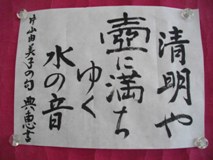 清明や
壺に満ち
ゆく
水の音
片山由美子の句 典恵書